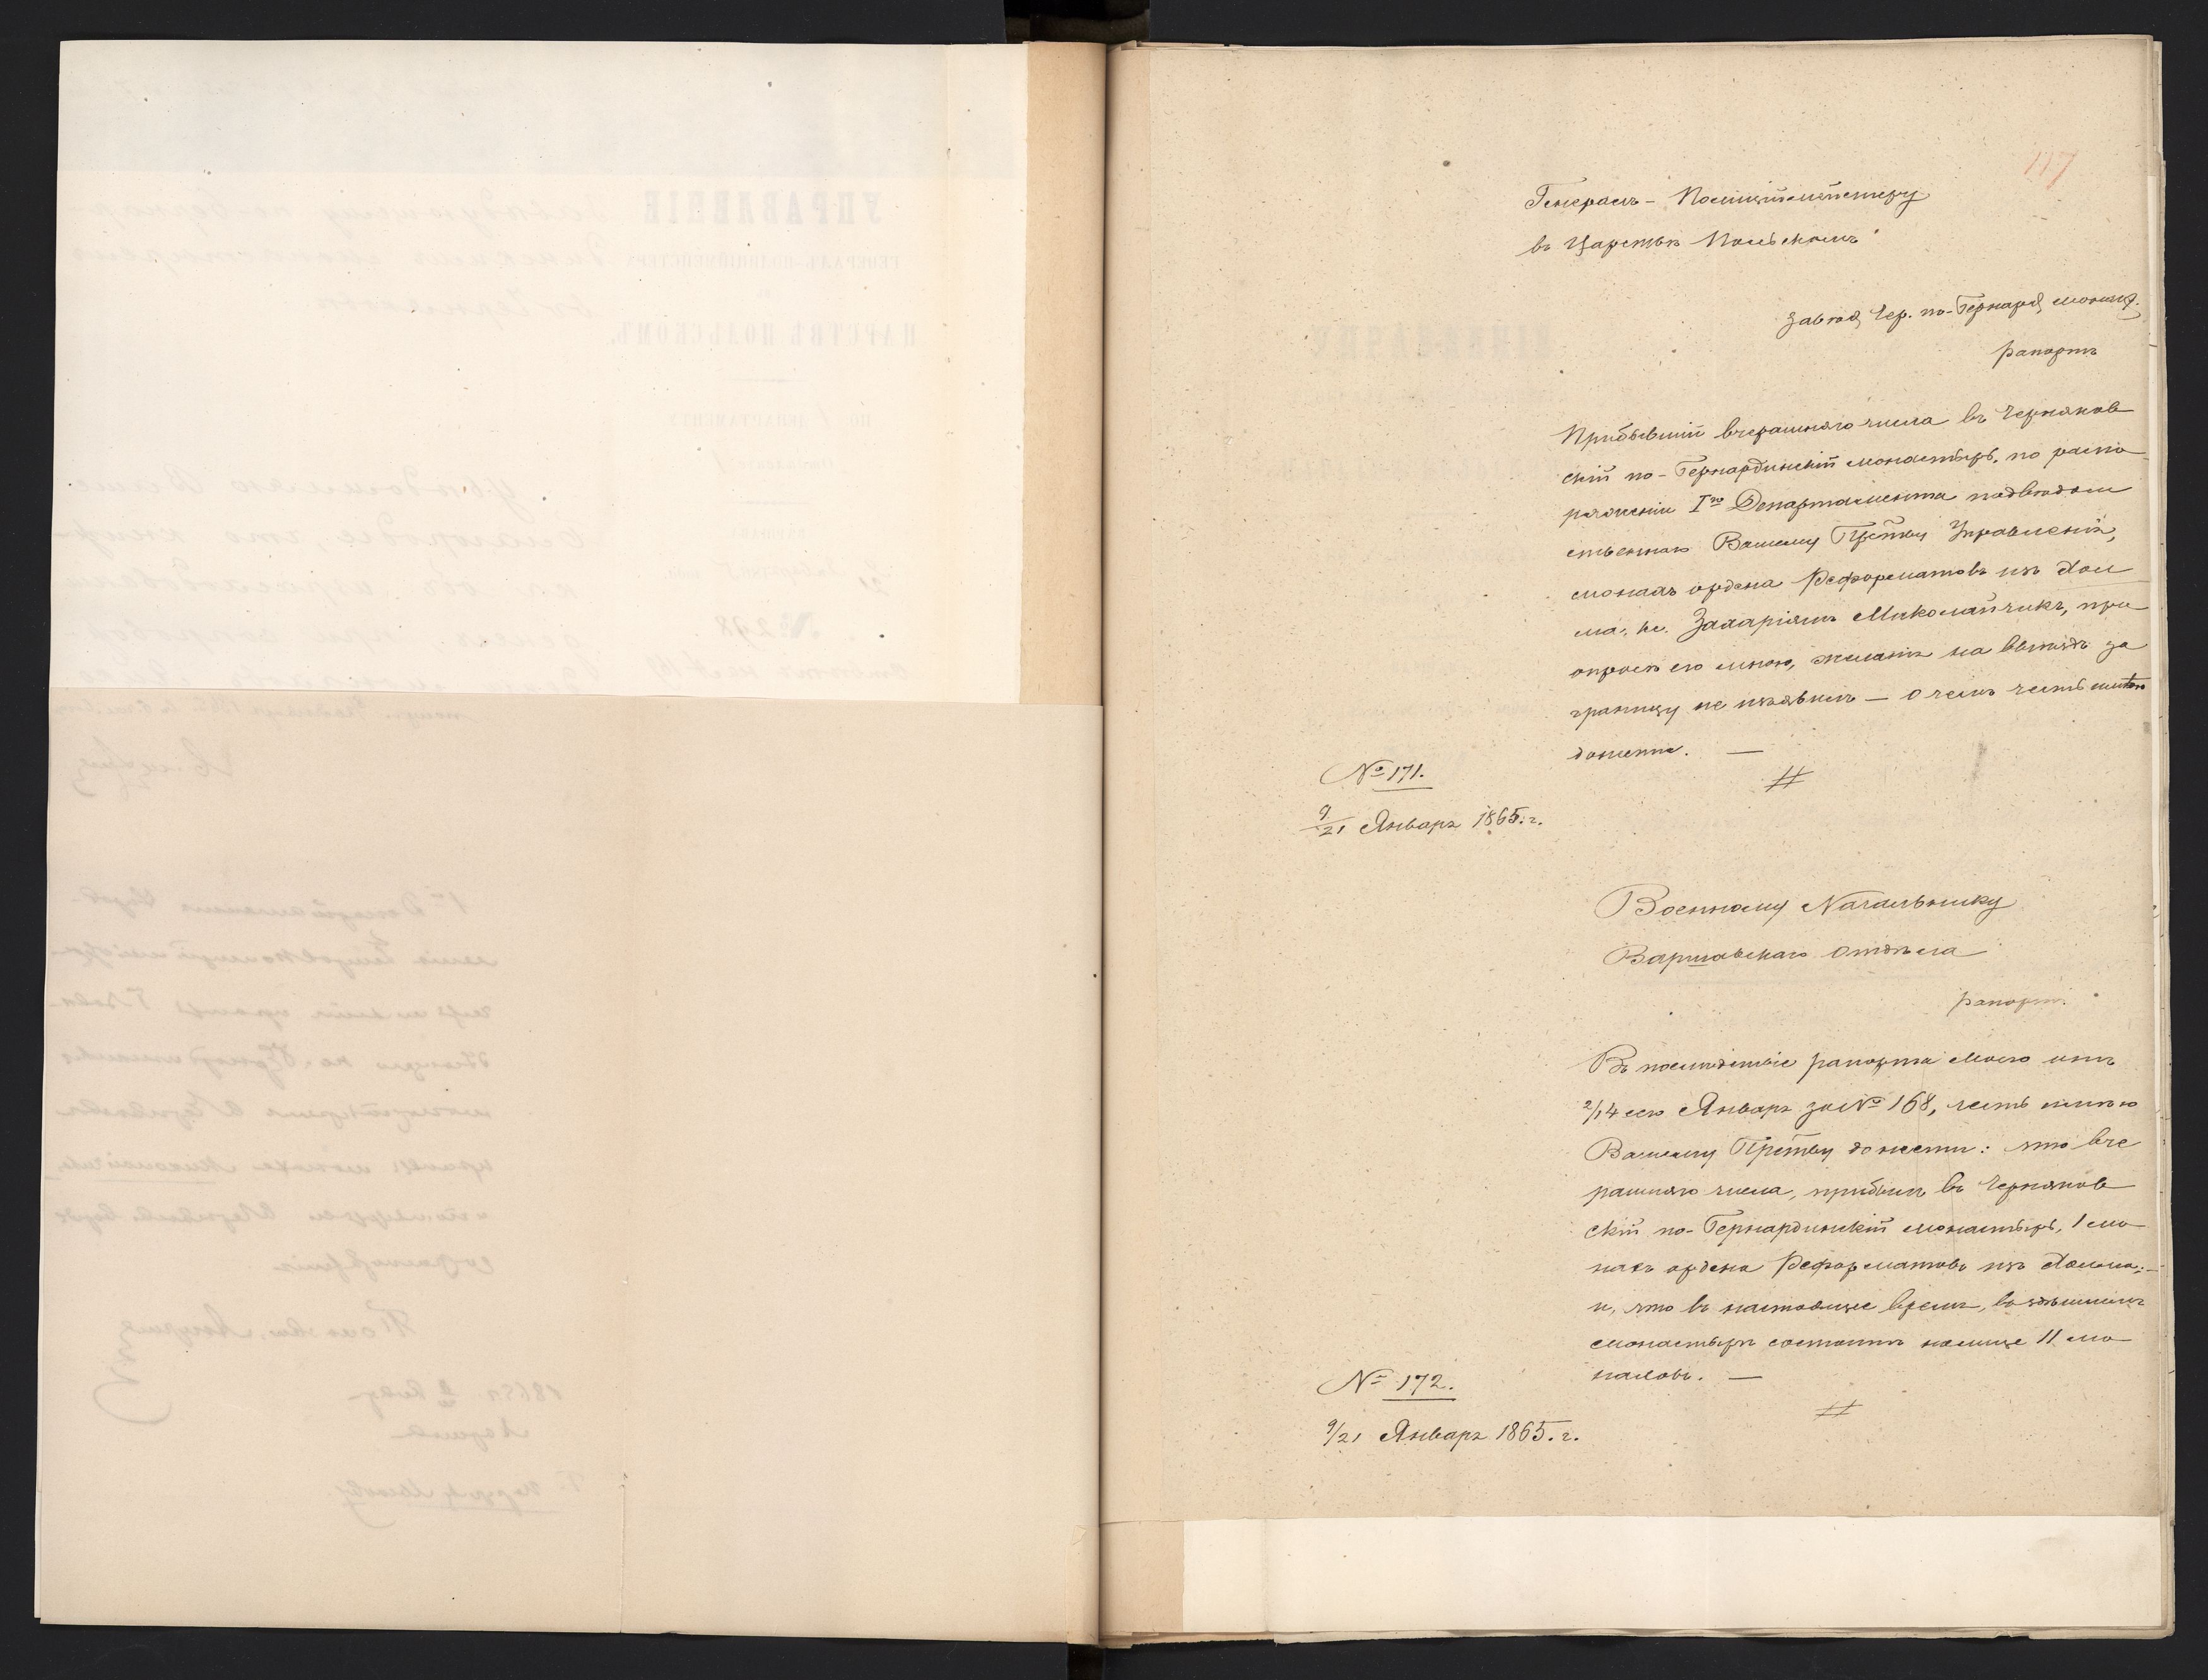 117
Генералъ-Полиціймейстеру
въ Царствѣ Польскомъ
Завѣд. Чер. по-Бернард. монаст.
рапортъ
Прибывшій вчерашняго числа въ Черняков
скій по-Бернардинскій монастырь, по распо
ряженію Iго Департамента подвѣдом
ственнаго Вашему Прству Управленія,
монахъ ордена Реформатовъ изъ Хол
ма, кс. Захаріяшъ Миколайчикъ, при
опросѣ его мною, желанія на выѣздъ за
границу не изъявилъ — о чемъ честь имѣю
донести. —
№ 171.
9/21 Января 1865. г.
Военному Начальнику
Варшавскаго Отдѣла
рапортъ.
Въ послѣдствіе рапорта моего отъ
2/14 сего Января за № 168, честь имѣю
Вашему Прству донести: что вче
рашняго числа, прибылъ въ Черняков
скій по-Бернардинскій монастырь, 1 мо
нахъ ордена Реформатовъ изъ Холма;
и, что въ настоящее время, въ здѣшнемъ
монастырѣ состоитъ на лице 11 мо
наховъ. —
№ 172.
9/21 Января 1865. г.